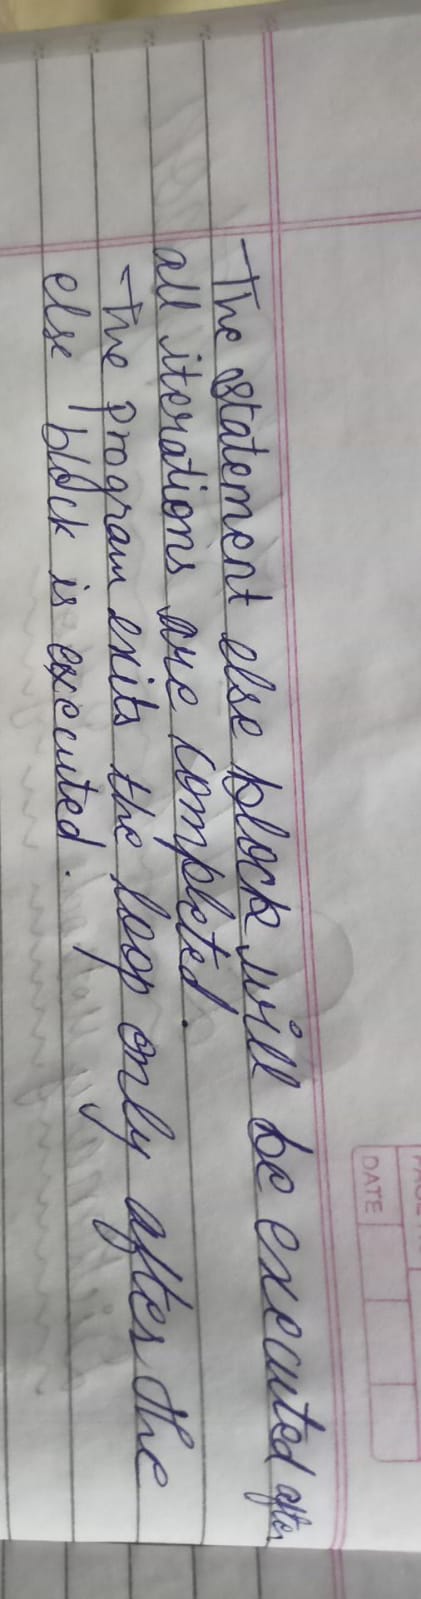 DATE
The statement else block will be executed after
all iterations are completed.
The program exits the loop only after the
else block is executed.